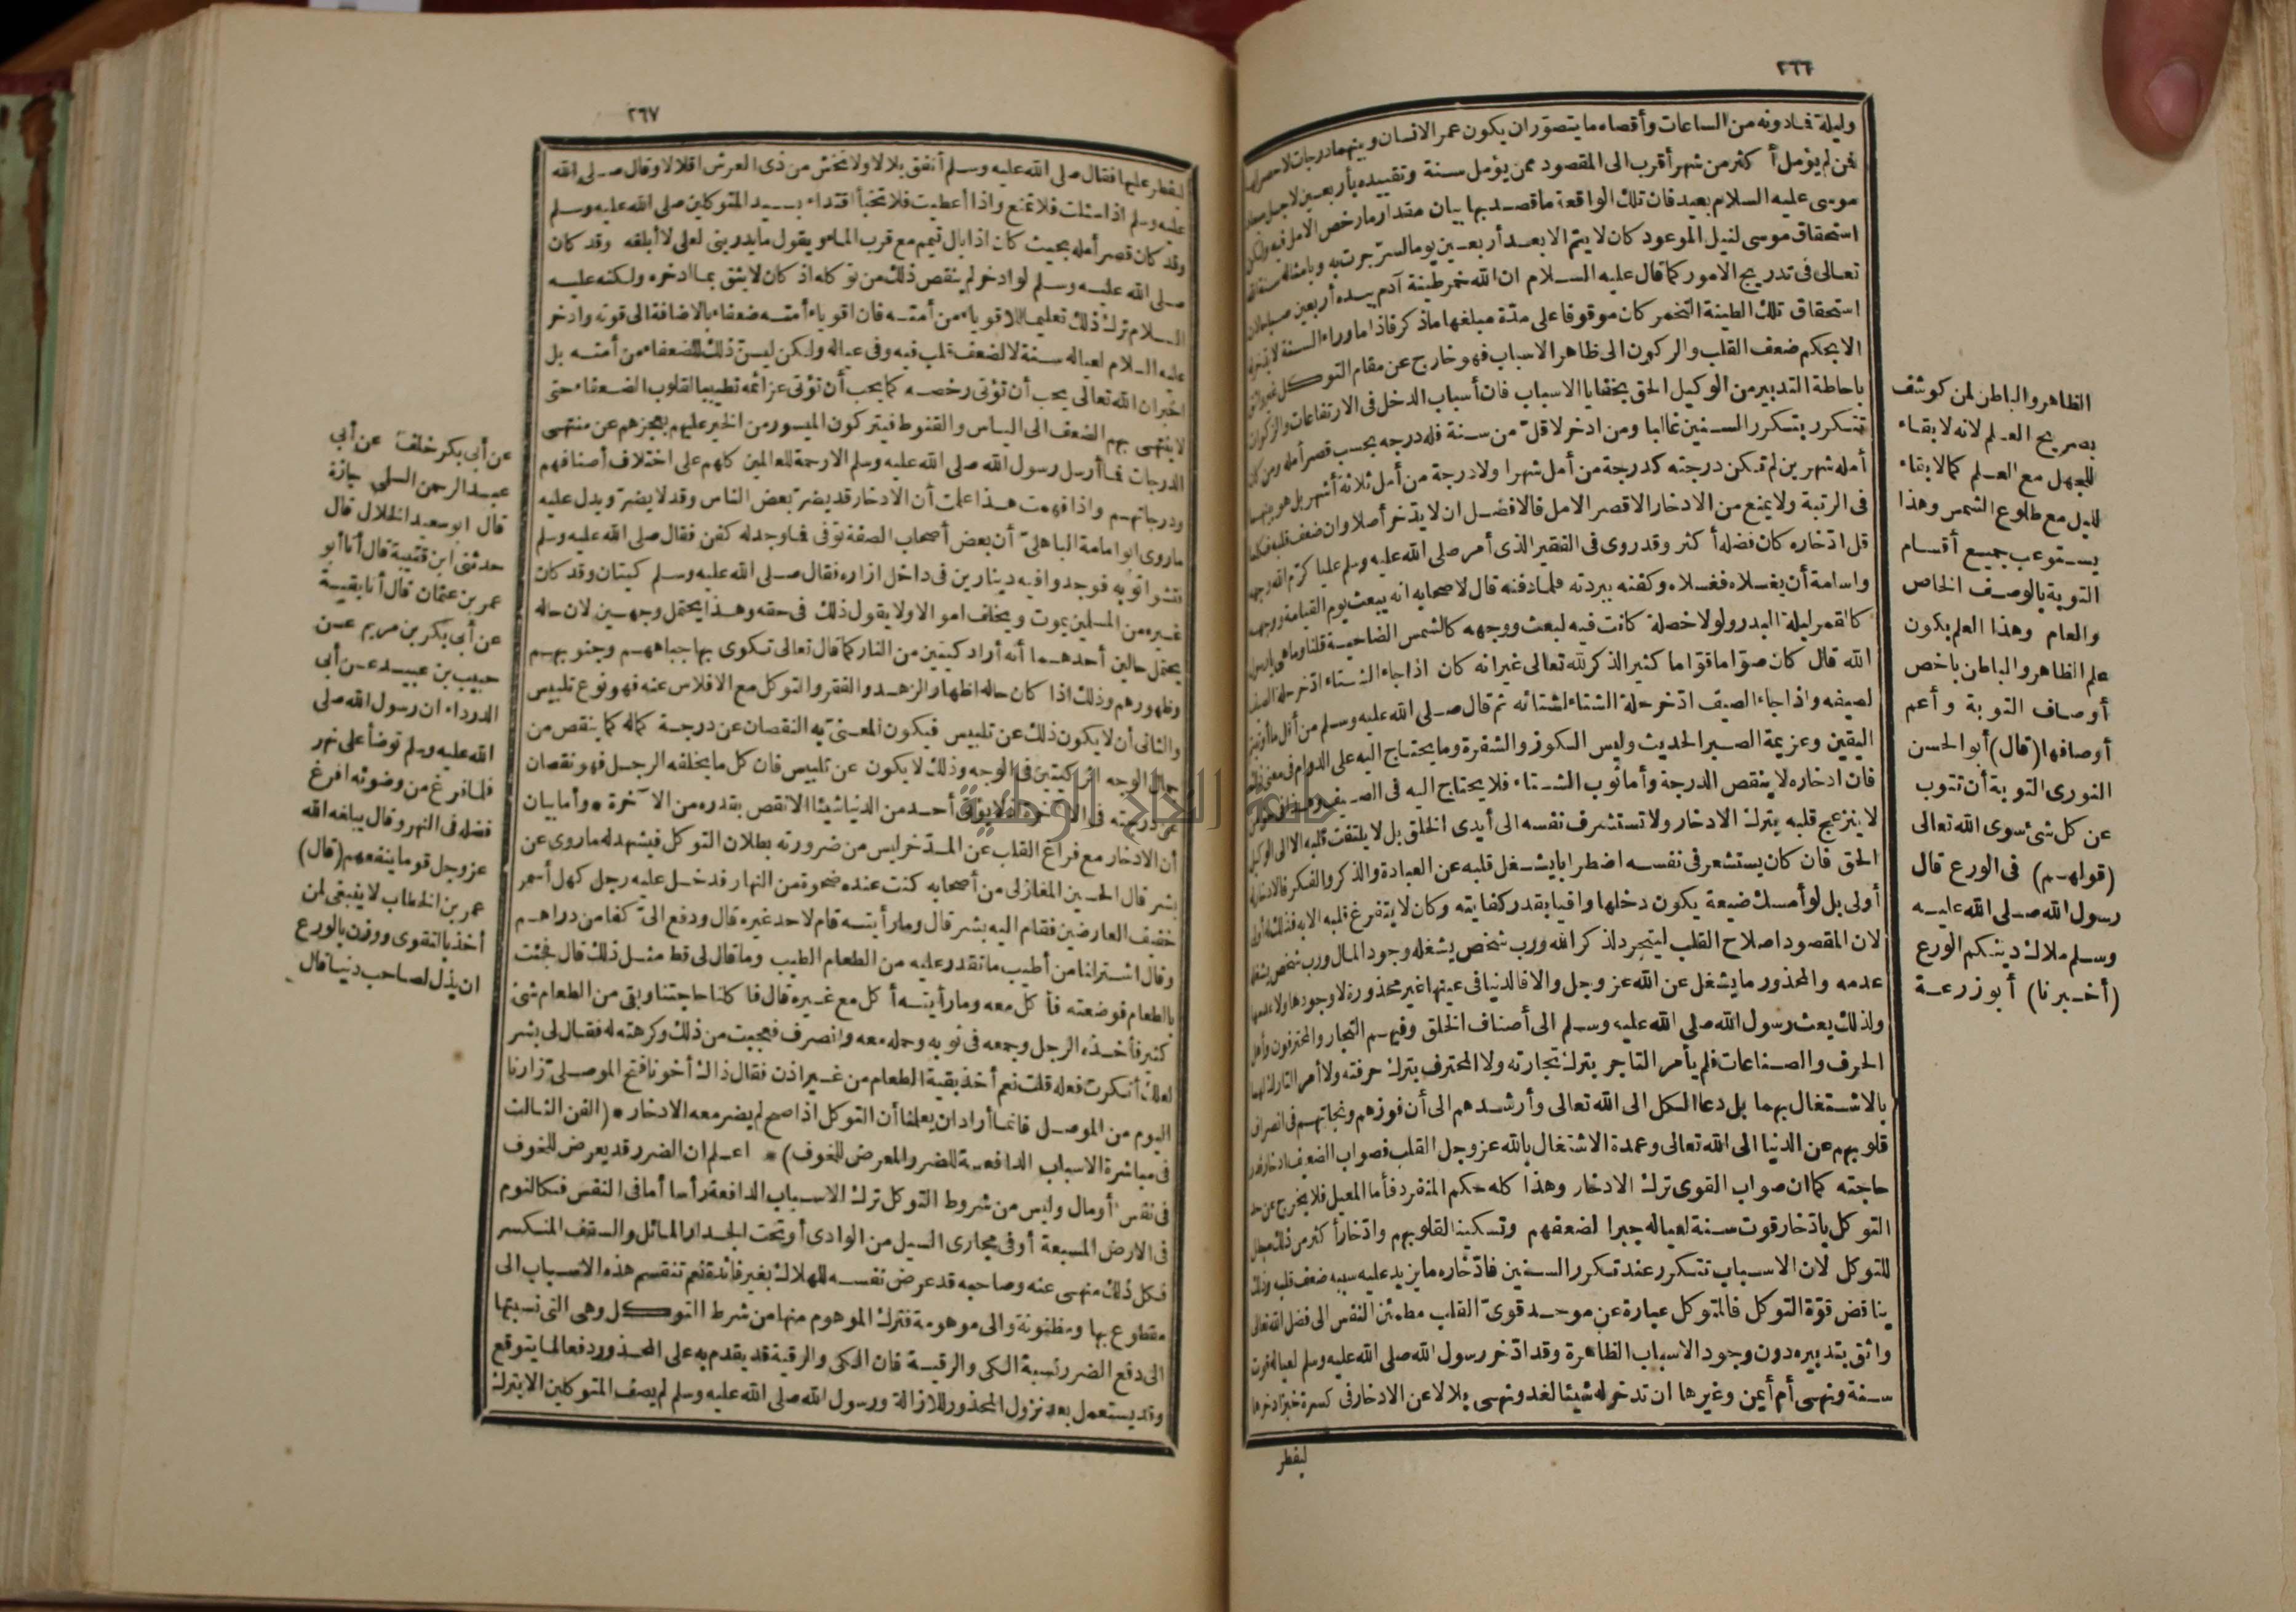 ٢٦٦
وليلة فادونه من الساعات وأقصاه ما يتصور ان يكون عمر الانسان وبينهما درجات لاحصر لها
فمن لم يؤمل أكثر من شهر أقرب الى المقصود ممن يؤمل سنة وتقييده بأربعين لاجل ميعاد
موسى عليه السلام بعيد فان تلك الواقعة ما قصد بها بيان مقدار ما رخص الامل فيه ولكن
استحقاق موسى لنيل الموعود كان لا يتم الا بعد أربعين يوما لسر جرت به وبأمثاله سنة الله
تعالى فى تدريج الامور كما قال عليه السلام ان الله خمر طينة آدم بيده أربعين صباحا لان
استحقاق تلك الطينة التخمر كان موقوفا على مدة مبلغها ما ذكر فاذا ما وراء السنة لا يدخر له
الا بحكم ضعف القلب والركون الى ظاهر الاسباب فهو خارج عن مقام التوكل غير واثق
باحاطة التدبير من الوكيل الحق بخفايا الاسباب فان أسباب الدخل فى الارتفاعات والزكوات
تتكرر بتكرر السنين غالبا ومن ادخر لاقل من سنة فله درجه بحسب قصر أمله ومن كان
أمله شهرين لم تكن درجته كدرجة من أمل شهرا ولا درجة من أمل ثلاثة أشهر بل هو بينهما
فى الرتبة ولا يمنع من الادخار الا قصر الامل فالافضل ان لا يدخر أصلا وان ضعف قلبه فكلما
قل ادخاره كان فضله أكثر وقد روى فى الفقير الذى أمر صلى الله عليه وسلم عليا كرم الله وجهه
واسامة أن يغسلاه فغسلاه وكفنه ببردته فلما دفنه قال لاصحابه انه يبعث يوم القيامة ووجهه
كالقمر ليلة البدر ولولا خصلة كانت فيه لبعث ووجهه كالشمس الضاحية قلنا وما هى يا رسول
الله قال كان صوّاما قوّاما كثير الذكر لله تعالى غير انه كان اذا جاء الشتاء ادخر حلة الصيف
لصيفه واذا جاء الصيف ادخر حلة الشتاء لشتائه ثم قال صلى الله عليه وسلم من أقل ما أوتيتم
اليقين وعزيمة الصبر الحديث وليس الكوز والشفرة وما يحتاج اليه على الدوام فى معنى ذلك
فان ادخاره لا ينقص الدرجة وأما ثوب الشتاء فلا يحتاج اليه فى الصيف وهذا فى حق من
لا ينزعج قلبه بترك الادخار ولا تستشرف نفسه الى أيدى الخلق بل لا يلتفت قلبه الا الى الوكيل
الحق فان كان يستشعر فى نفسه اضطرابا يشغل قلبه عن العبادة والذكر والفكر فالادخار له
أولى بل لو أمسك ضيعة يكون دخلها وافيا بقدر كفايته وكان لا يتفرغ قلبه الا به فذلك له أولى
لان المقصود اصلاح القلب ليتجرد لذكر الله ورب شخص يشغله وجود المال ورب شخص يشغله
عدمه والمحذور ما يشغل عن الله عز وجل والا فالدنيا فى عينها غير محذورة لا وجودها ولا عدمها
ولذلك بعث رسول الله صلى الله عليه وسلم الى أصناف الخلق وفيهم التجار والمحترفون وأهل
الحرف والصناعات فلم يأمر التاجر بترك تجارته ولا المحترف بترك حرفته ولا أمر التارك لهما
بالاشتغال بهما بل دعا الكل الى الله تعالى وأرشدهم الى أن فوزهم ونجاتهم فى انصراف
قلوبهم عن الدنيا الى الله تعالى وعمدة الاشتغال بالله عز وجل القلب فصواب الضعيف ادخار قدر
حاجته كما ان صواب القوى ترك الادخار وهذا كله حكم المنفرد فأما المعيل فلا يخرج عن حد
التوكل بادخار قوت سنة لعياله جبرا لضعفهم وتسكينا لقلوبهم وادخار أكثر من ذلك مبطل
للتوكل لان الاسباب تتكرر عند تكرر السنين فادخاره ما يزيد عليه سببه ضعف قلبه وذلك
يناقض قوة التوكل فالمتوكل عبارة عن موحد قوى القلب مطمئن النفس الى فضل الله تعالى
واثق بتدبيره دون وجود الاسباب الظاهرة وقد ادخر رسول الله صلى الله عليه وسلم لعياله قوت
سنة ونهى أم أيمن وغيرها ان تدخر له شيئا لغد ونهى بلالا عن الادخار فى كسرة خبز ادخرها
ليفطر
الظاهر والباطن لمن كوشف
بصريح العلم لانه لا بقاء
للجهل مع العلم كما لا بقاء
لليل مع طلوع الشمس وهذا
يستوعب جميع أقسام
التوبة بالوصف الخاص
والعام وهذا العلم يكون
علم الظاهر والباطن باخص
أوصاف التوبة وأعم
أوصافها (قال) أبو الحسن
النورى التوبة أن تتوب
عن كل شئ سوى الله تعالى
(قولهم) فى الورع قال
رسول الله صلى الله عليه
وسلم ملاك دينكم الورع
(أخبرنا) أبو زرعة
٢٦٧
ليفطر عليها فقال صلى الله عليه وسلم أنفق بلالا ولا تخش من ذى العرش اقلالا وقال صلى الله
عليه وسلم اذا سئلت فلا تمنع واذا أعطيت فلا تخبأ اقتداء بسيد المتوكلين صلى الله عليه وسلم
وقد كان قصر أمله بحيث كان اذا بال تيمم مع قرب الماء ويقول ما يدرينى لعلى لا أبلغه وقد كان
صلى الله عليه وسلم لو ادخر لم ينقص ذلك من توكله اذ كان لا يثق بما ادخره ولكنه عليه
السلام ترك ذلك تعليما للاقوياء من أمته فان اقوياء أمته ضعفاء بالاضافة الى قوته وادخر
عليه السلام لعياله سنة لا لضعف قلب فيه وفى عياله ولكن ليسن ذلك للضعفاء من أمته بل
اخبر ان الله تعالى يحب أن تؤتى رخصه كما يحب أن تؤتى عزائمه تطييبا لقلوب الضعفاء حتى
لا ينتهى بهم الضعف الى اليأس والقنوط فيتركون الميسور من الخير عليهم بعجزهم عن منتهى
الدرجات فما أرسل رسول الله صلى الله عليه وسلم الا رحمة للعالمين كلهم على اختلاف أصنافهم
ودرجاتهم واذا فهمت هذا علمت أن الادخار قد يضر بعض الناس وقد لا يضر ويدل عليه
ما روى ابو امامة الباهلى أن بعض أصحاب الصفة توفى فما وجد له كفن فقال صلى الله عليه وسلم
فتشوا ثوبه فوجدوا فيه دينارين فى داخل ازاره فقال صلى الله عليه وسلم كيتان وقد كان
غيره من المسلمين يموت ويخلف اموالا ولا يقول ذلك فى حقه وهذا يحتمل وجهين لان حاله
يحتمل حالين أحدهما أنه أراد كيتين من النار كما قال تعالى تكوى بها جباههم وجنوبهم
وظهورهم وذلك اذا كان حاله اظهار الزهد والفقر والتوكل مع الافلاس عنه فهو نوع تلبيس
والثانى أن لا يكون ذلك عن تلبيس فيكون المعنى به النقصان عن درجة كماله كما ينقص من
جمال الوجه اثر كيتين فى الوجه وذلك لا يكون عن تلبيس فان كل ما يخلفه الرجل فهو نقصان
عن درجته فى الآخرة اذ لا يؤتى أحد من الدنيا شيئا الا نقص بقدره من الآخرة * وأما بيان
أن الادخار مع فراغ القلب عن المدخر ليس من ضرورته بطلان التوكل فيشهد له ما روى عن
بشر قال الحسين المغازلى من أصحابه كنت عنده ضحوة من النهار فدخل عليه رجل كهل أسمر
خفيف العارضين فقام اليه بشر قال وما رأيته قام لاحد غيره قال ودفع الىّ كفا من دراهم
وقال اشتر لنا من أطيب ما تقدر عليه من الطعام الطيب وما قال لى قط مثل ذلك قال فجئت
بالطعام فوضعته فأكل معه وما رأيته أكل مع غيره قال فأكلنا حاجتنا وبقى من الطعام شئ
كثير فأخذه الرجل وجمعه فى ثوبه وحمله معه وانصرف فعجبت من ذلك وكرهته له فقال لى بشر
لعلك أنكرت فعله قلت نعم أخذ بقية الطعام من غير اذن فقال ذاك أخونا فتح الموصلى زارنا
اليوم من الموصل فانما أراد ان يعلمنا أن التوكل اذا صح لم يضر معه الادخار * (الفن الثالث
فى مباشرة الاسباب الدافعة للضرر المعرض للخوف) * اعلم ان الضرر قد يعرض للخوف
فى نفس أو مال وليس من شروط التوكل ترك الاسباب الدافعة رأسا أما فى النفس فكالنوم
فى الارض المسبعة أو فى مجارى السيل من الوادى أو تحت الجدار المائل والسقف المنكسر
فكل ذلك منهى عنه وصاحبه قد عرض نفسه للهلاك بغير فائدة نعم تنقسم هذه الاسباب الى
مقطوع بها ومظنونة والى موهومة فترك الموهوم منها من شرط التوكل وهى التى نسبتها
الى دفع الضرر نسبة الكى والرقية فان الكى والرقية قد يقدم به على المحذور دفعا لما يتوقع
وقد يستعمل بعد نزول المحذور للازالة ورسول الله صلى الله عليه وسلم لم يصف المتوكلين الا بترك
عن أبى بكر خلف عن أبى
عبد الرحمن السلمى اجازة
قال ابو سعيد الخلال قال
حدثنى ابن قتيبة قال أنا أبو
عمر بن عثمان قال أنا بقية
عن أبى بكر بن مريم عن
حبيب بن عبيد عن أبى
الدرداء ان رسول الله صلى
الله عليه وسلم توضأ على نهر
فلما فرغ من وضوئه افرغ
فضله فى النهر وقال يبلغه الله
عز وجل قوما ينفعهم (قال)
عمر بن الخطاب لا ينبغى لمن
أخذ بالتقوى ووزن بالورع
ان يذل لصاحب دنيا قال